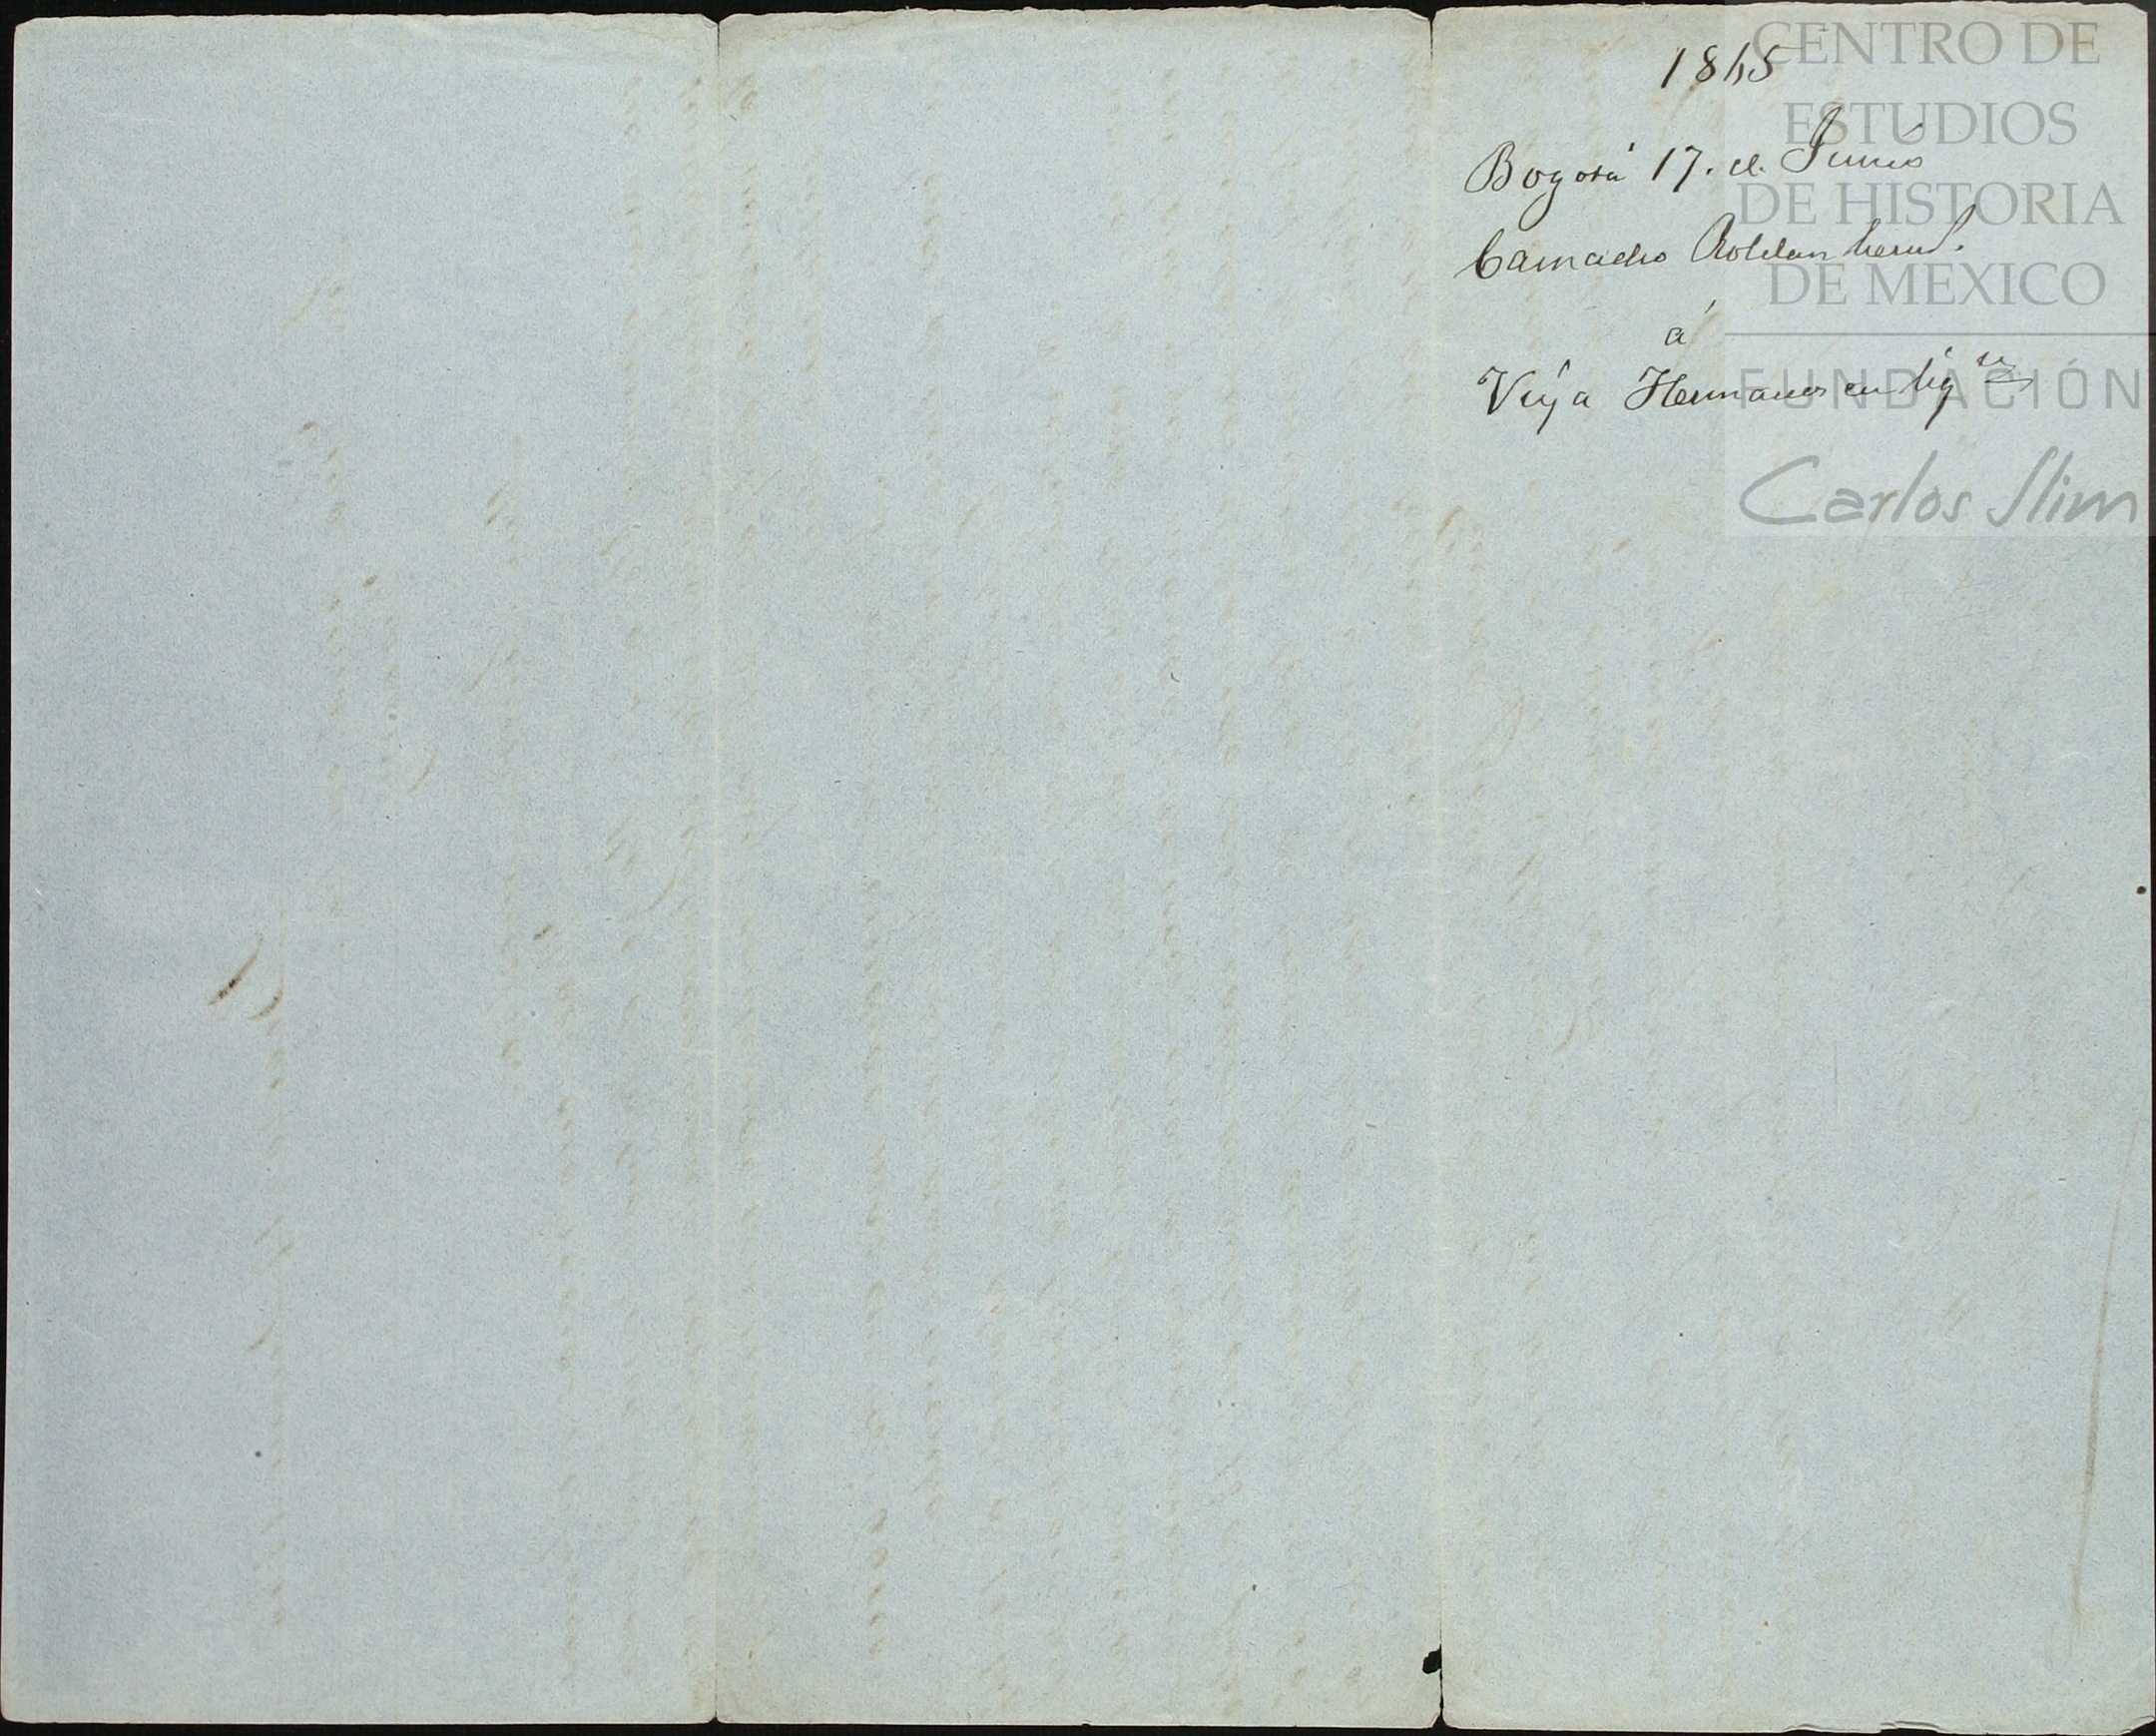 1845
Bogotá 17. de Junio
Camacho Roldan herms.
á
Veija Hermanos en liq
CENTRO DE
ESTUDIOS
DE HISTORIA
DE MEXICO
FUNDACIÓN
Carlos Slim